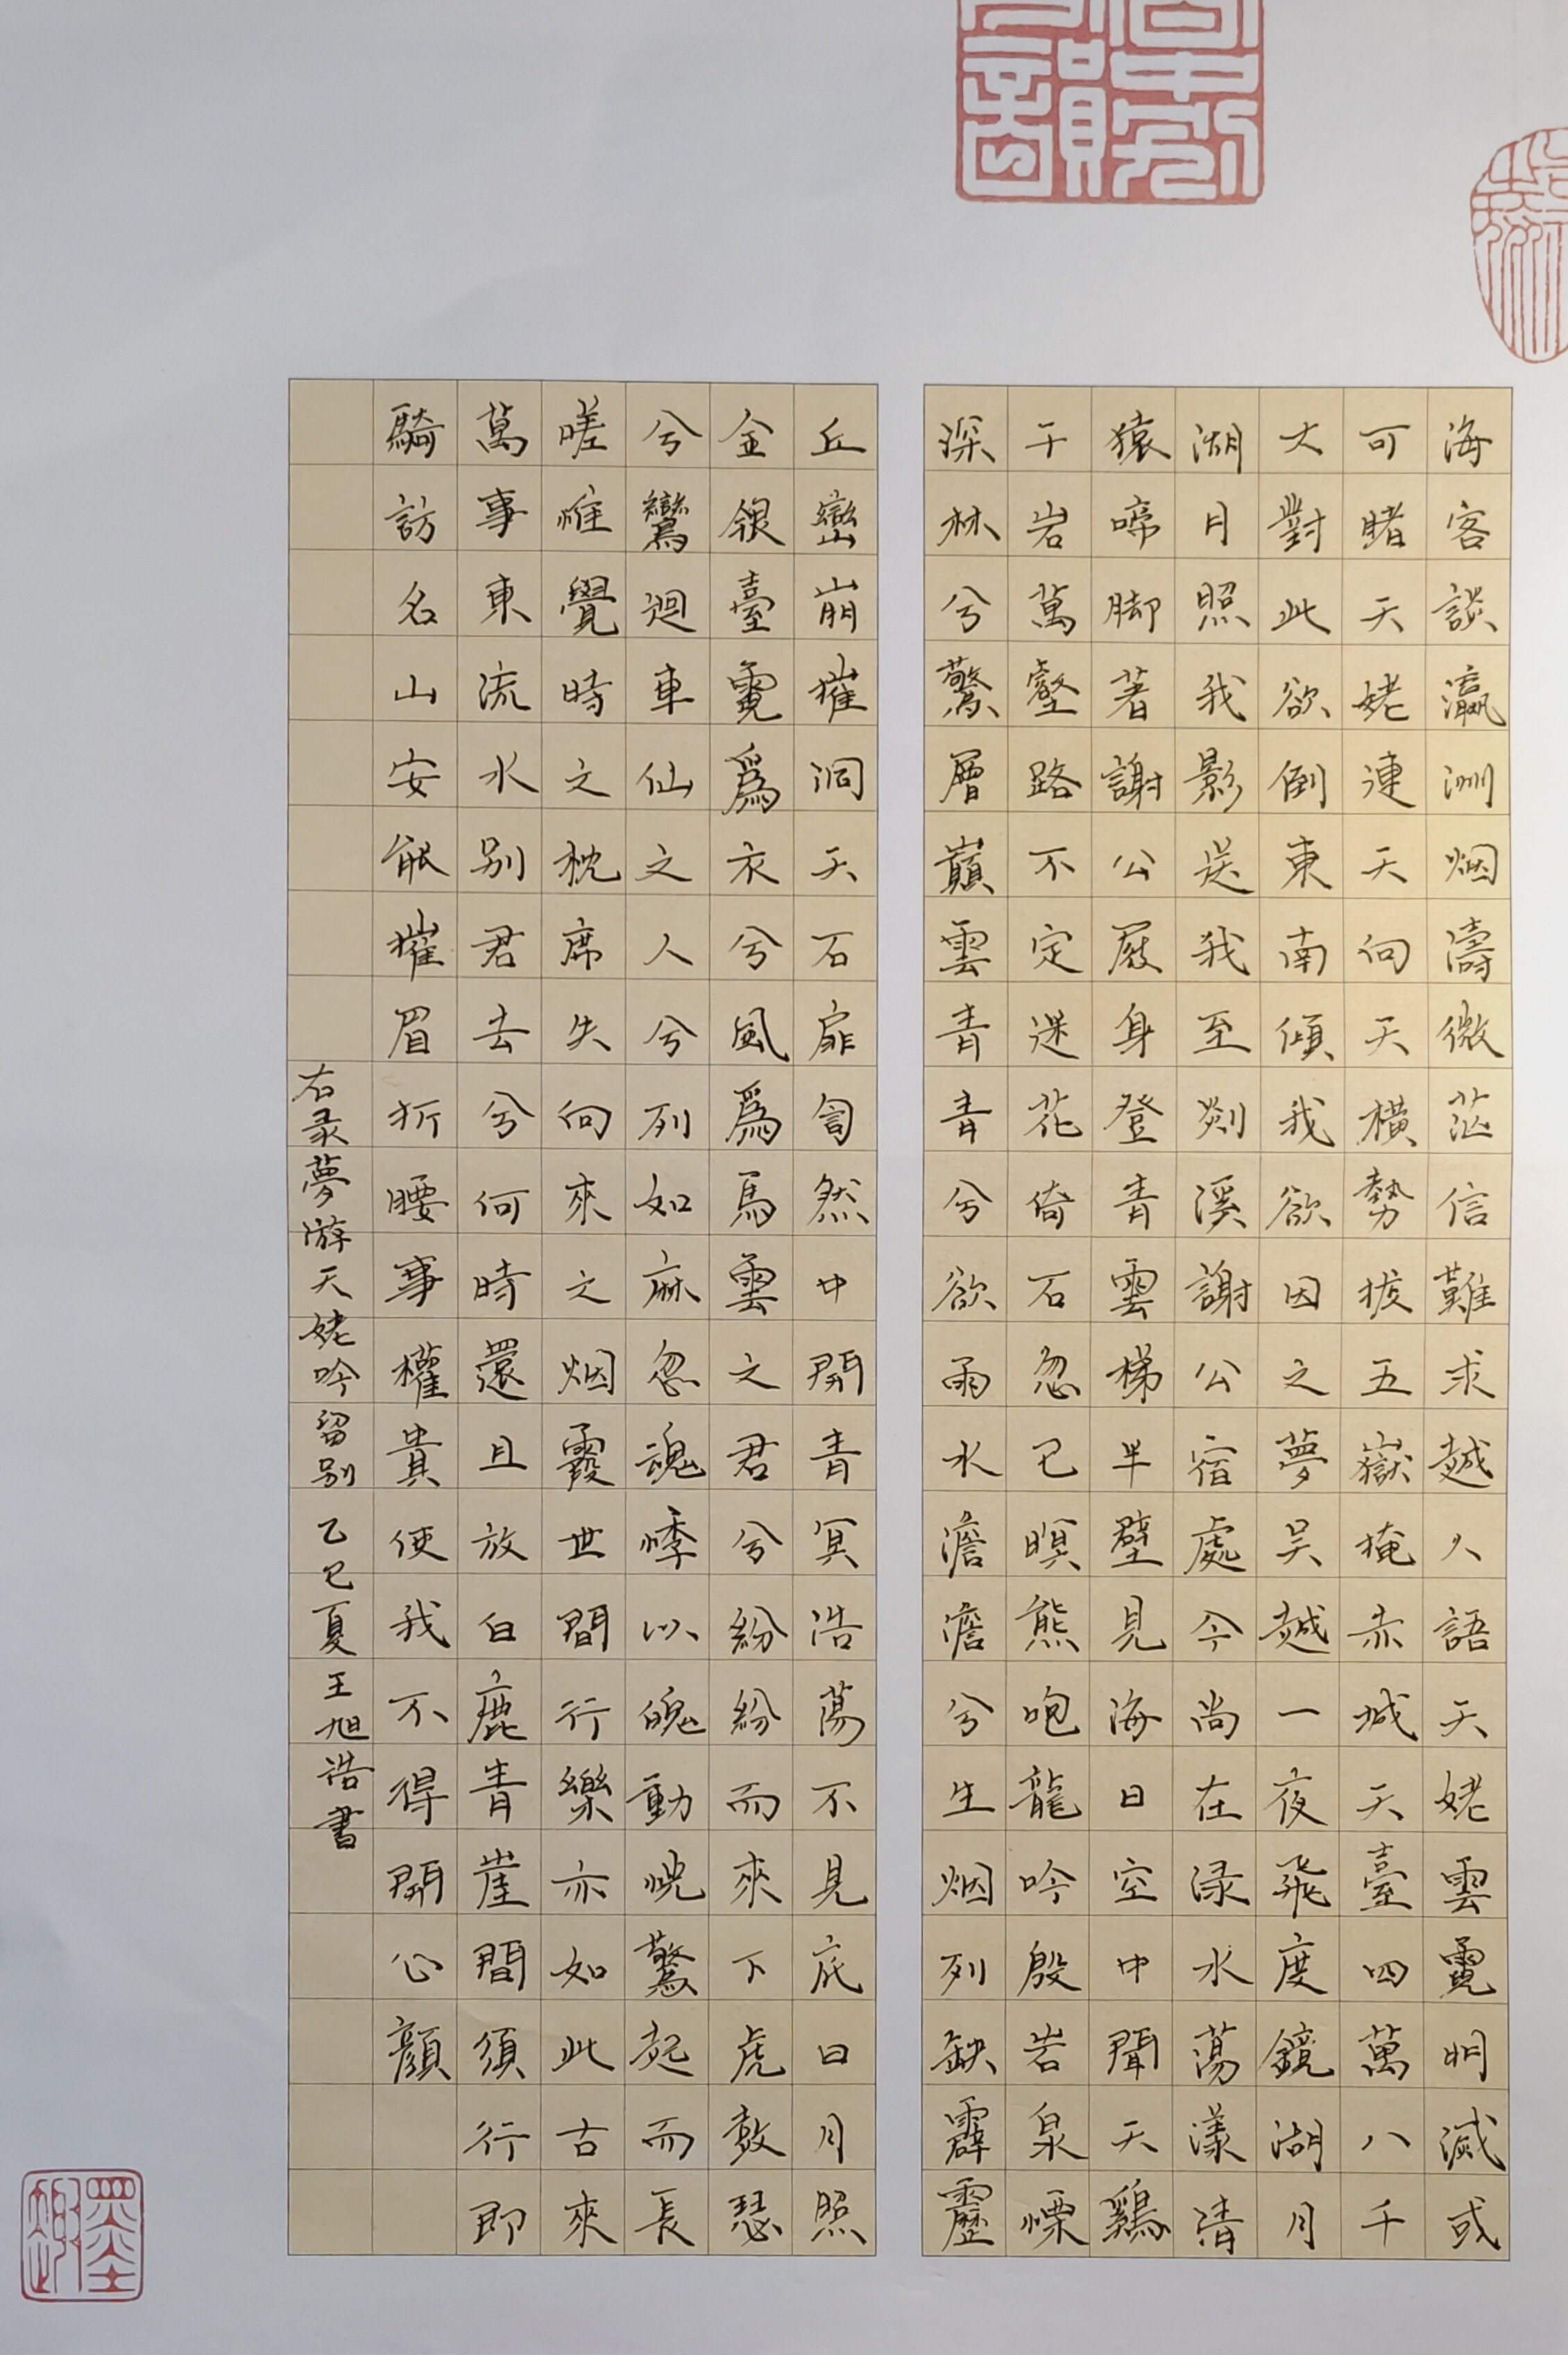 海客談瀛洲烟濤微茫信難求越人語天姥雲霓明滅或
可睹天姥連天向天橫勢拔五嶽掩赤城天臺四萬八千
丈對此欲倒東南傾我欲因之夢吴越一夜飛度鏡湖月
湖月照我影送我至剡溪謝公宿處今尚在渌水蕩漾清
猿啼脚著謝公屐身登青雲梯半壁見海日空中聞天鷄
千岩萬壑路不定迷花倚石忽已暝熊咆龍吟殷岩泉慄
深林兮驚層巔雲青青兮欲雨水澹澹兮生烟列缺霹靂
丘巒崩摧洞天石扉訇然中開青冥浩蕩不見底日月照
金銀臺霓爲衣兮風爲馬雲之君兮紛紛而來下虎鼓瑟
兮鸞迴車仙之人兮列如麻忽魂悸以魄動怳驚起而長
嗟惟覺時之枕席失向來之烟霞世間行樂亦如此古來
萬事東流水别君去兮何時還且放白鹿青崖間須行即
騎訪名山安能摧眉折腰事權貴使我不得開心顔
右录夢游天姥吟留别 乙巳夏 王旭浩書
墨趣